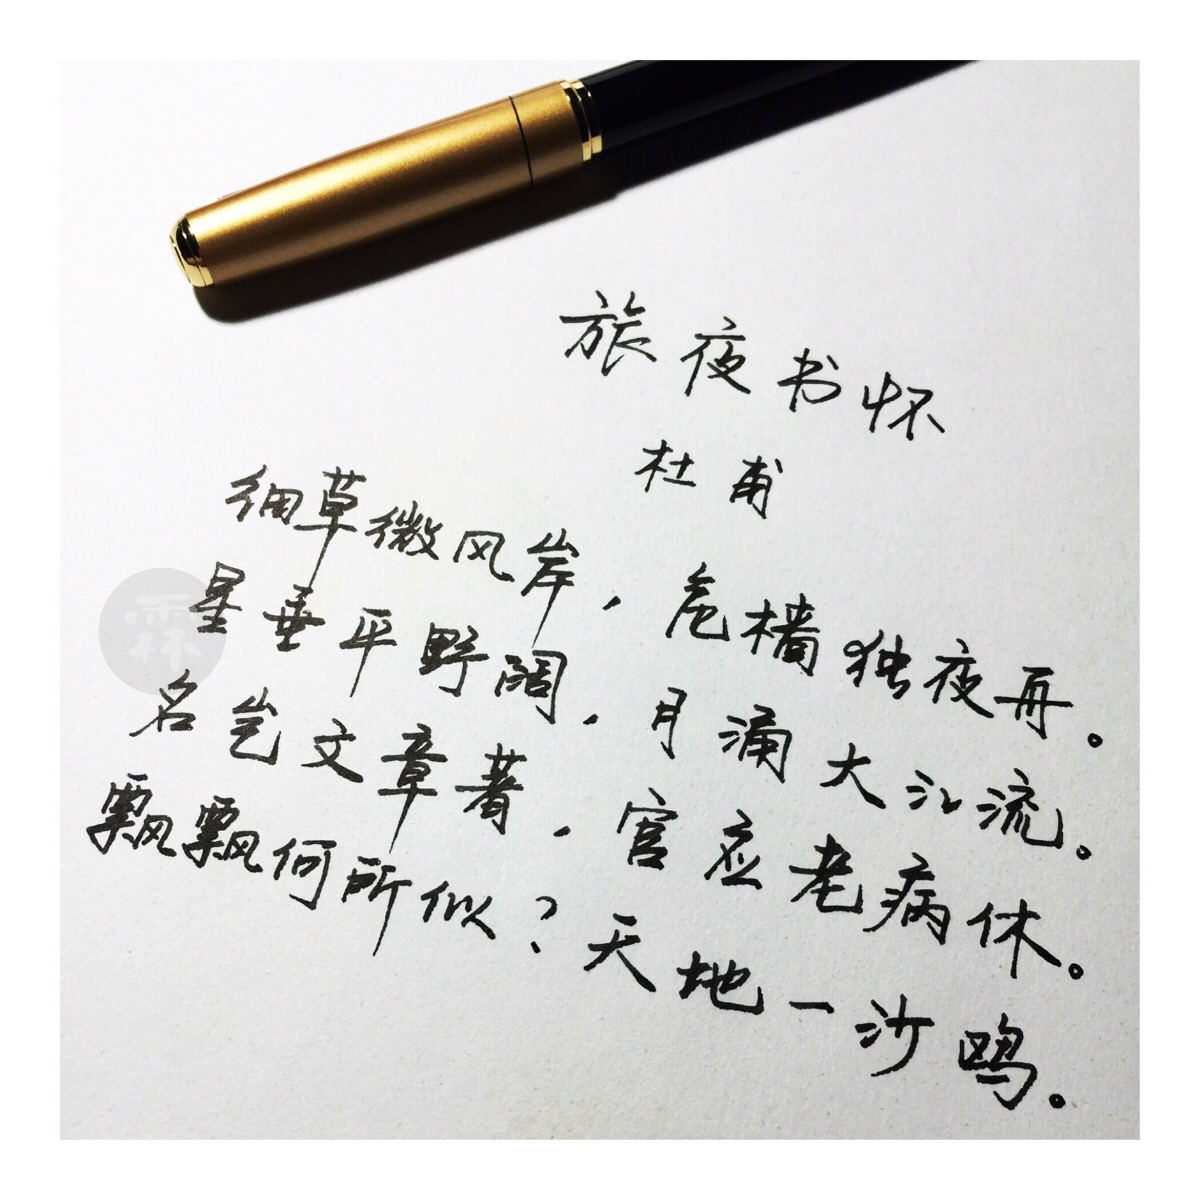 旅夜书怀
杜甫
细草微风岸，危樯独夜舟。
星垂平野阔，月涌大江流。
名岂文章著，官应老病休。
飘飘何所似？天地一沙鸥。
霖